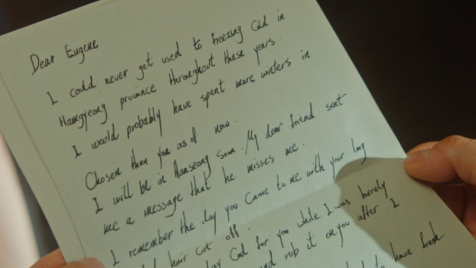 Dear Eugene
I could never get used to freezing cold in
Hamgyeong province throughout these years.
I would probably have spent more winters in
Chosen than you as of now.
I will be in Hanseong soon. My dear friend sent
me a message that he misses me.
I remember the day you came to me with your long
hair cut off.
God for you while I was barely
and rob it on you after I
to have